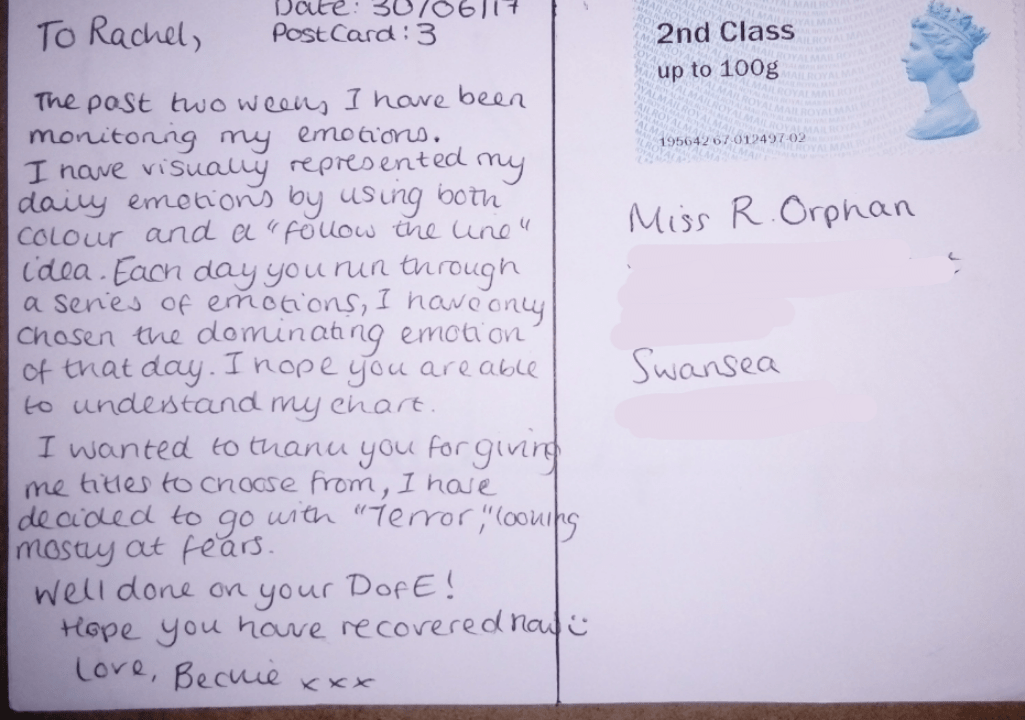 Date: 30/06/17
To Rachel,
PostCard: 3
The past two weeks, I have been
monitoring my emotions.
I have visually represented my
daily emotions by using both
colour and a "follow the line"
idea. Each day you run through
a series of emotions, I have only
chosen the dominating emotion
of that day. I hope you are able
to understand my chart.
I wanted to thank you for giving
me titles to choose from, I have
decided to go with "Terror", looking
mostly at fears.
Well done on your DofE!
Hope you have recovered now :)
Love, Beckie xxx
2nd Class
up to 100g
195642 67-012497-02
Miss R. Orphan
Swansea